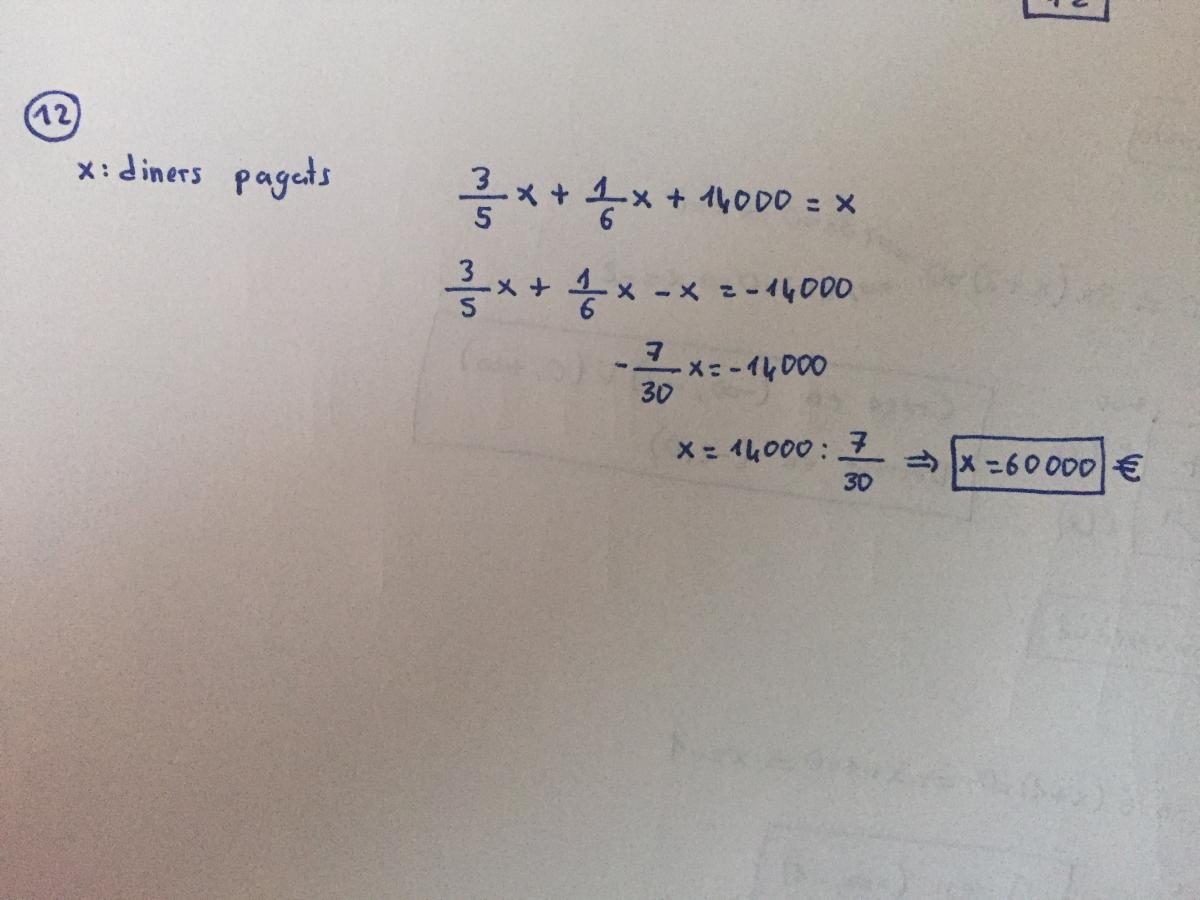 12
x: diners pagats
3/5 x + 1/6 x + 14000 = x
3/5 x + 1/6 x - x = -14000
-7/30 x = -14000
x = 14000 : 7/30 ⇒ x = 60000 €